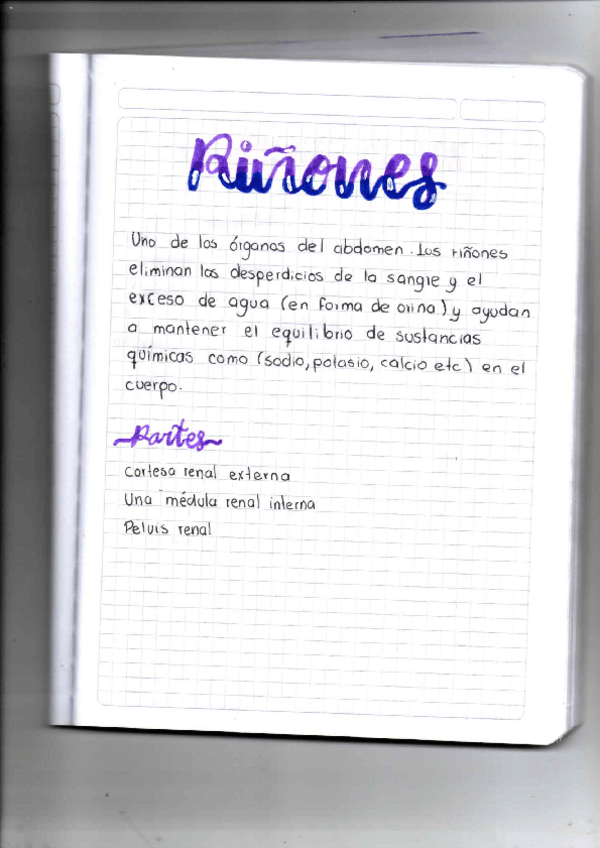 Riñones
Uno de los órganos del abdomen. Los riñones
eliminan los desperdicios de la sangre y el
exceso de agua (en forma de orina) y ayudan
a mantener el equilibrio de sustancias
químicas como (sodio, potasio, calcio etc) en el
cuerpo.
Partes
Cortesa renal externa
Una médula renal interna
Pelvis renal